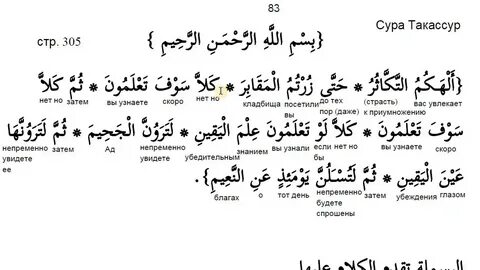 83
Сура Такассур
стр. 305
{بِسْمِ اللَّهِ الرَّحْمَنِ الرَّحِيمِ}
{أَلْهَكُمُ التَّكَاثُرُ * حَتَّى زُرْتُمُ الْمَقَابِرَ * كَلاَّ سَوْفَ تَعْلَمُونَ * ثُمَّ كَلاَّ
вас увлекает (страсть) к приумножению до тех пор (даже) посетили вы кладбища нет но скоро вы узнаете затем нет но
سَوْفَ تَعْلَمُونَ * كَلاَّ لَوْ تَعْلَمُونَ عِلْمَ الْيَقِينِ * لَتَرَوُنَّ الْجَحِيمَ * ثُمَّ لَتَرَوُنَّهَا
скоро вы узнаете нет но если бы вы узнали знанием убедительным непременно увидете Ад затем непременно увидете ее
عَيْنَ الْيَقِينِ * ثُمَّ لَتُسْئَلُنَّ يَوْمَئِذٍ عَنِ النَّعِيمِ}.
глазом убеждения затем непременно будете спрошены тот день о благах
البسملة تقدم الكلام عليها